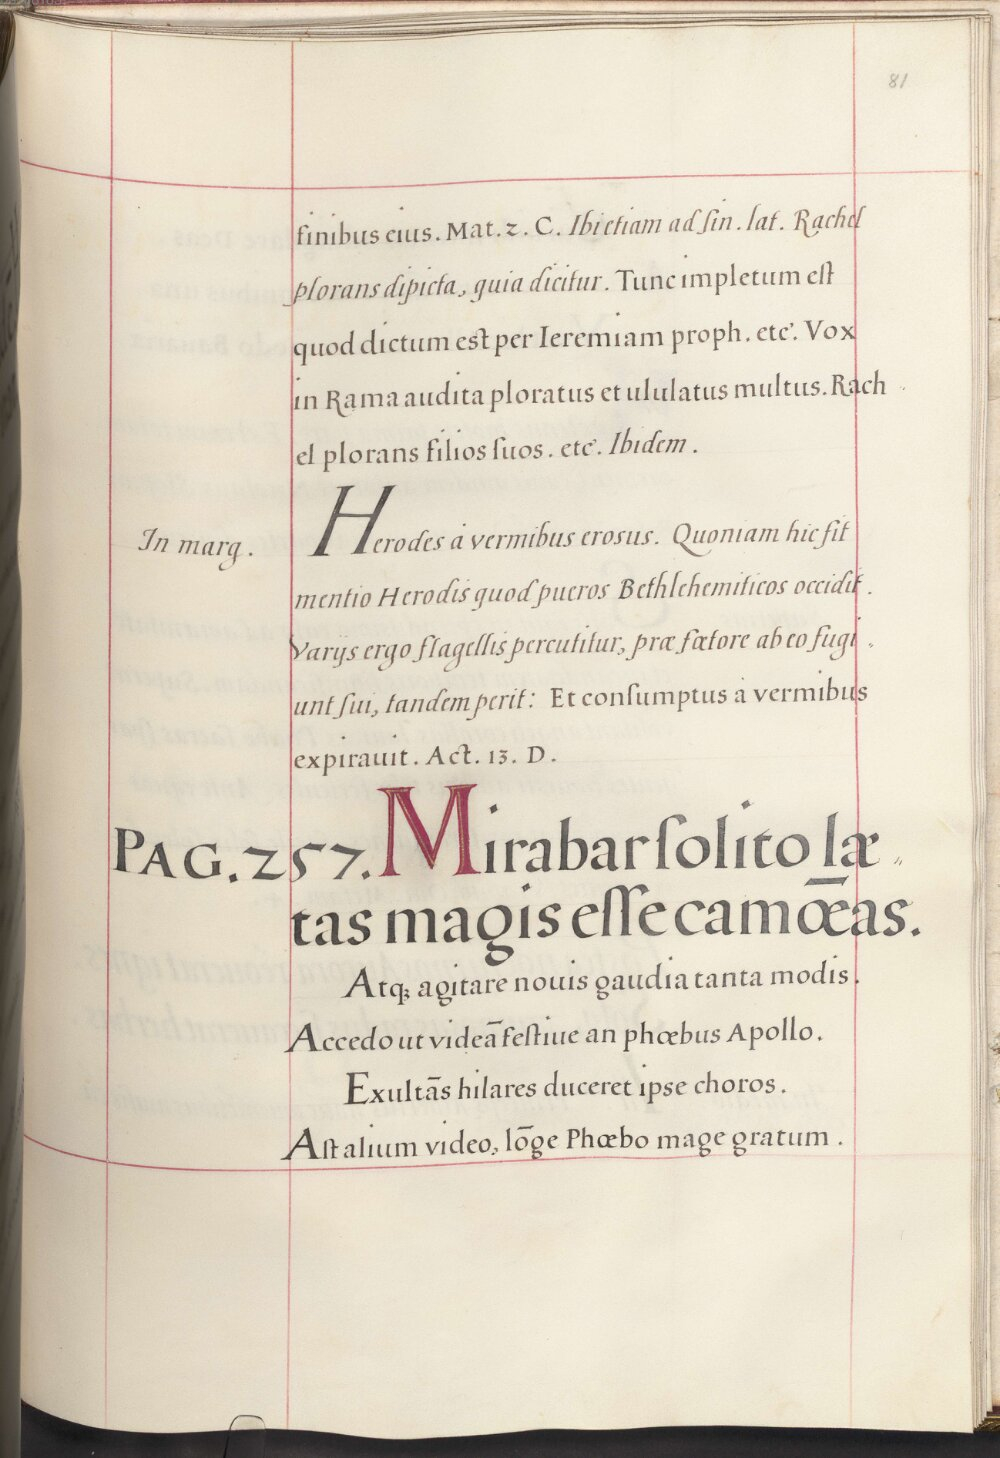 81
finibus eius. Mat. 2. C. Ibi etiam ad sin. lat. Rachel
plorans dipicta, quia dicitur. Tunc impletum est
quod dictum est per Ieremiam proph. etc. Vox
in Rama audita ploratus et ululatus multus. Rach
el plorans filios suos. etc. Ibidem.
In marg. Herodes à vermibus erosus. Quoniam hic fit
mentio Herodis quod pueros Bethlehemiticos occidit.
Varijs ergo flagellis percutitur, præ fœtore ab eo fugi
unt sui, tandem perit: Et consumptus à vermibus
expirauit. Act. 13. D.
PAG. 257. Mirabar solito læ
tas magis esse camœ̅as.
Atq; agitare nouis gaudia tanta modis.
Accedo ut videā festiue an phœbus Apollo.
Exultās hilares duceret ipse choros.
Ast alium video, lōge Phœbo mage gratum.